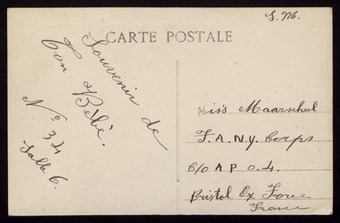 S. M.
CARTE POSTALE
Souvenir de
Ton Bébé.
No 34
Salle 6.
Miss Maarschal
F.A.N.Y. Corps
C/O A P O.4.
Bristol Ex Force
France